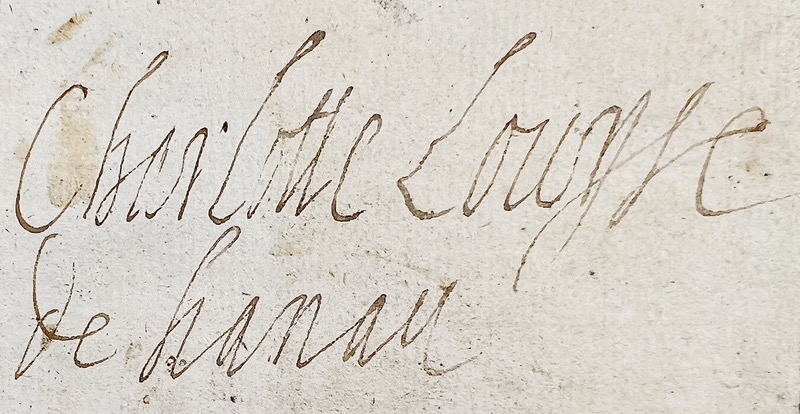 Charlotte Louyse
de hanau